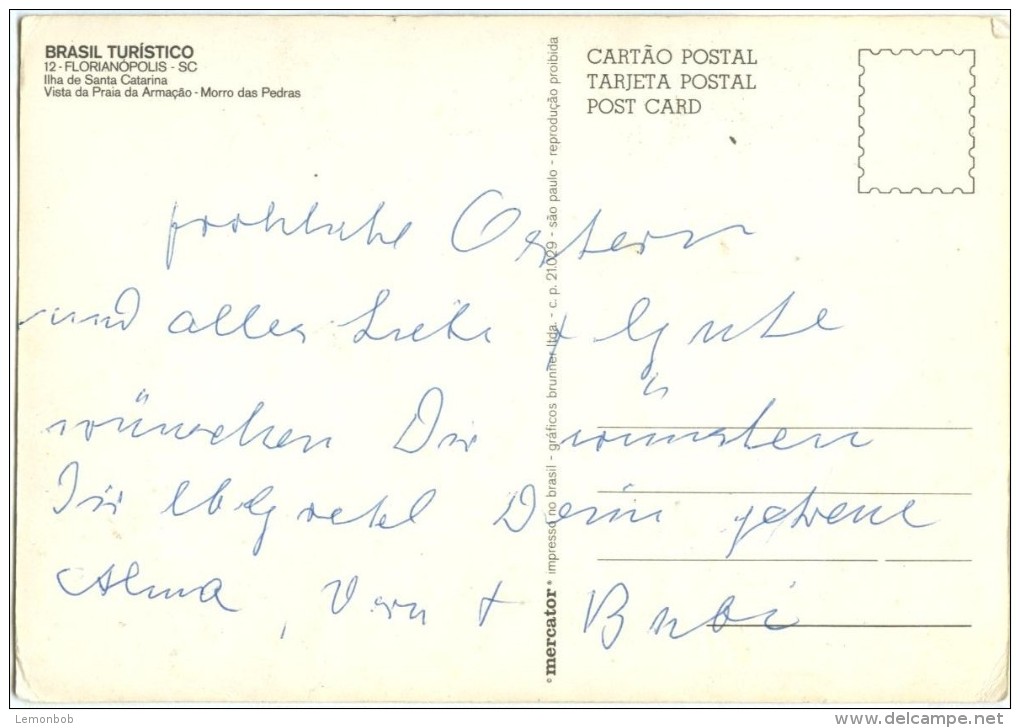 BRASIL TURÍSTICO
12-FLORIANÓPOLIS - SC
Ilha de Santa Catarina
Vista da Praia da Armação - Morro das Pedras
CARTÃO POSTAL
TARJETA POSTAL
POST CARD
mercator impresso no brasil - gráficos brunner ltda. - c. p. 21.029 - são paulo - reprodução proibida
fröhliche Ostern
und alles Liebe + Gute
wünschen Dir wünschen
Dir Deine getreue
Alma, Vera + Bubi
Lemonbob
www.delcampe.net